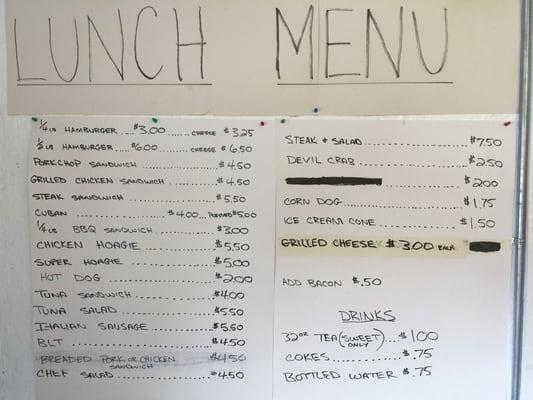 LUNCH MENU
1/4 LB HAMBURGER .... $3.00 ...... CHEESE $3.25
1/2 LB HAMBURGER .... $6.00 ...... CHEESE $6.50
PORKCHOP SANDWICH ........ $4.50
GRILLED CHICKEN SANDWICH ........ $4.50
STEAK SANDWICH ........ $5.50
CUBAN ........ $4.00 ... PRESSED $5.00
1/4 LB BBQ SANDWICH ........ $3.00
CHICKEN HOAGIE ........ $5.50
SUPER HOAGIE ........ $5.00
HOT DOG ........ $2.00
TUNA SANDWICH ........ $4.00
TUNA SALAD ........ $5.50
ITALIAN SAUSAGE ........ $5.50
BLT ........ $4.50
BREADED PORK OR CHICKEN ........ $4.50
SANDWICH
CHEF SALAD ........ $4.50
STEAK & SALAD ........ $7.50
DEVIL CRAB ........ $2.50
........ $2.00
CORN DOG ........ $1.75
ICE CREAM CONE ........ $1.50
GRILLED CHEESE $3.00 EACH
ADD BACON $.50
DRINKS
32oz TEA (SWEET ONLY) ... $1.00
COKES ........ $.75
BOTTLED WATER ... $.75